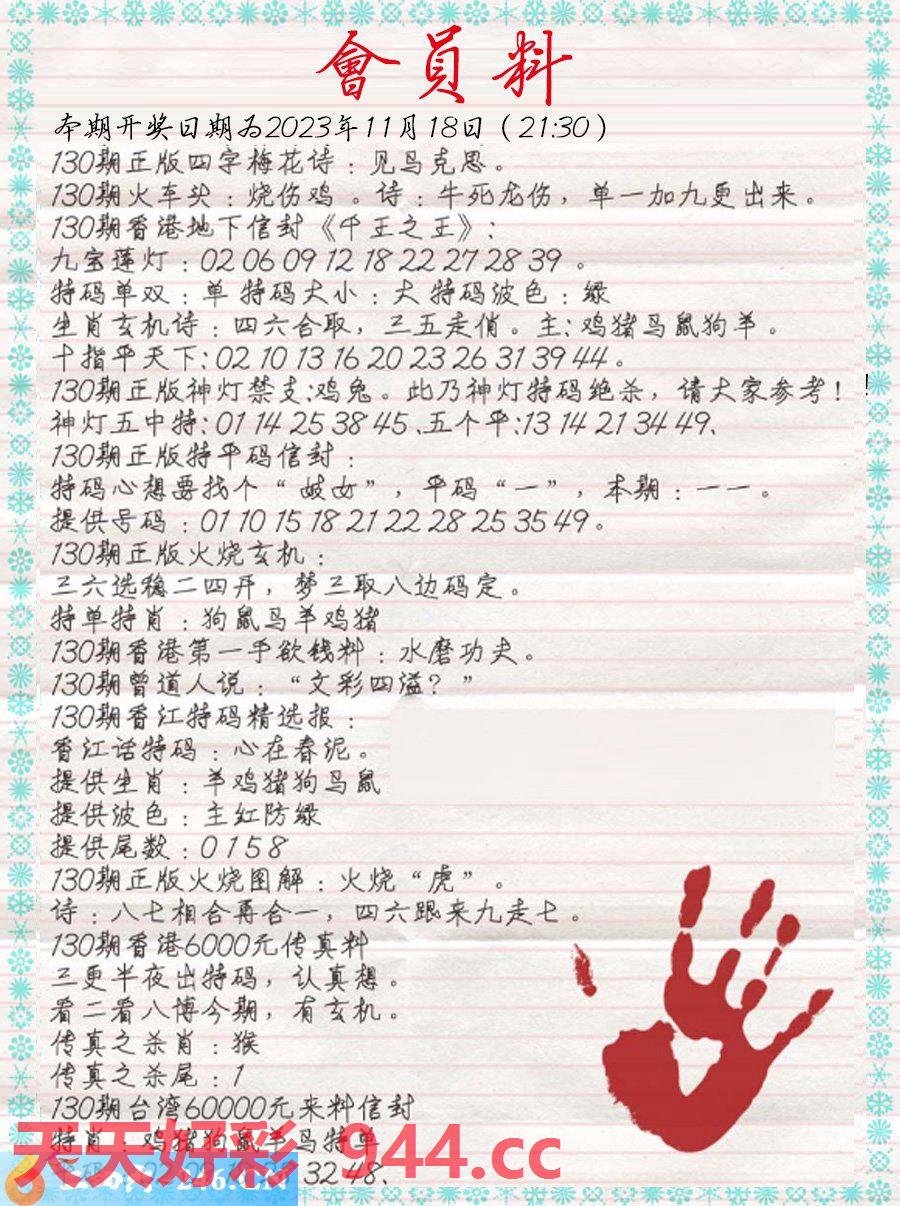 會員料
本期开奖日期为2023年11月18日（21:30）
130期正版四字梅花诗：见鸟克思。
130期火车头：烧伤鸡 。诗：牛死龙伤，单一加九更出来。
130期香港地下信封《千王之王》：
九宝莲灯：02 06 09 12 18 22 27 28 39 。
特码单双：单 特码大小：大 特码波色：绿
生肖玄机诗：四六合取，三五走俏。主：鸡猪马鼠狗羊。
十指平天下：02 10 13 16 20 23 26 31 39 44。
130期正版神灯禁支:鸡兔。此乃神灯特码绝杀，请大家参考！!
神灯五中特：01 14 25 38 45 、五个平:13 14 21 34 49、
130期正版特平码信封：
特码心想要找个“ 妓女”，平码“一”，本期：一一。
提供号码：01 10 15 18 21 22 28 25 35 49。
130期正版火烧玄机：
三六选稳二四开，梦三取八边码定。
特单特肖：狗鼠马羊鸡猪
130期香港第一手欲钱料：水磨功夫。
130期曾道人说：“文彩四溢？”
130期香江特码精选报：
香江话特码：心在春泥。
提供生肖：羊鸡猪狗马鼠
提供波色：主红防绿
提供尾数：0 1 5 8
130期正版火烧图解：火烧“虎”。
诗：八七相合再合一，四六跟来九走七。
130期香港6000元传真料
三更半夜出特码，认真想。
看二看八博今期，有玄机。
传真之杀肖：猴
传真之杀尾：1
130期台湾60000元来料信封
特肖：鸡猪狗鼠羊马特单
天天好彩 944.cc
32 48、